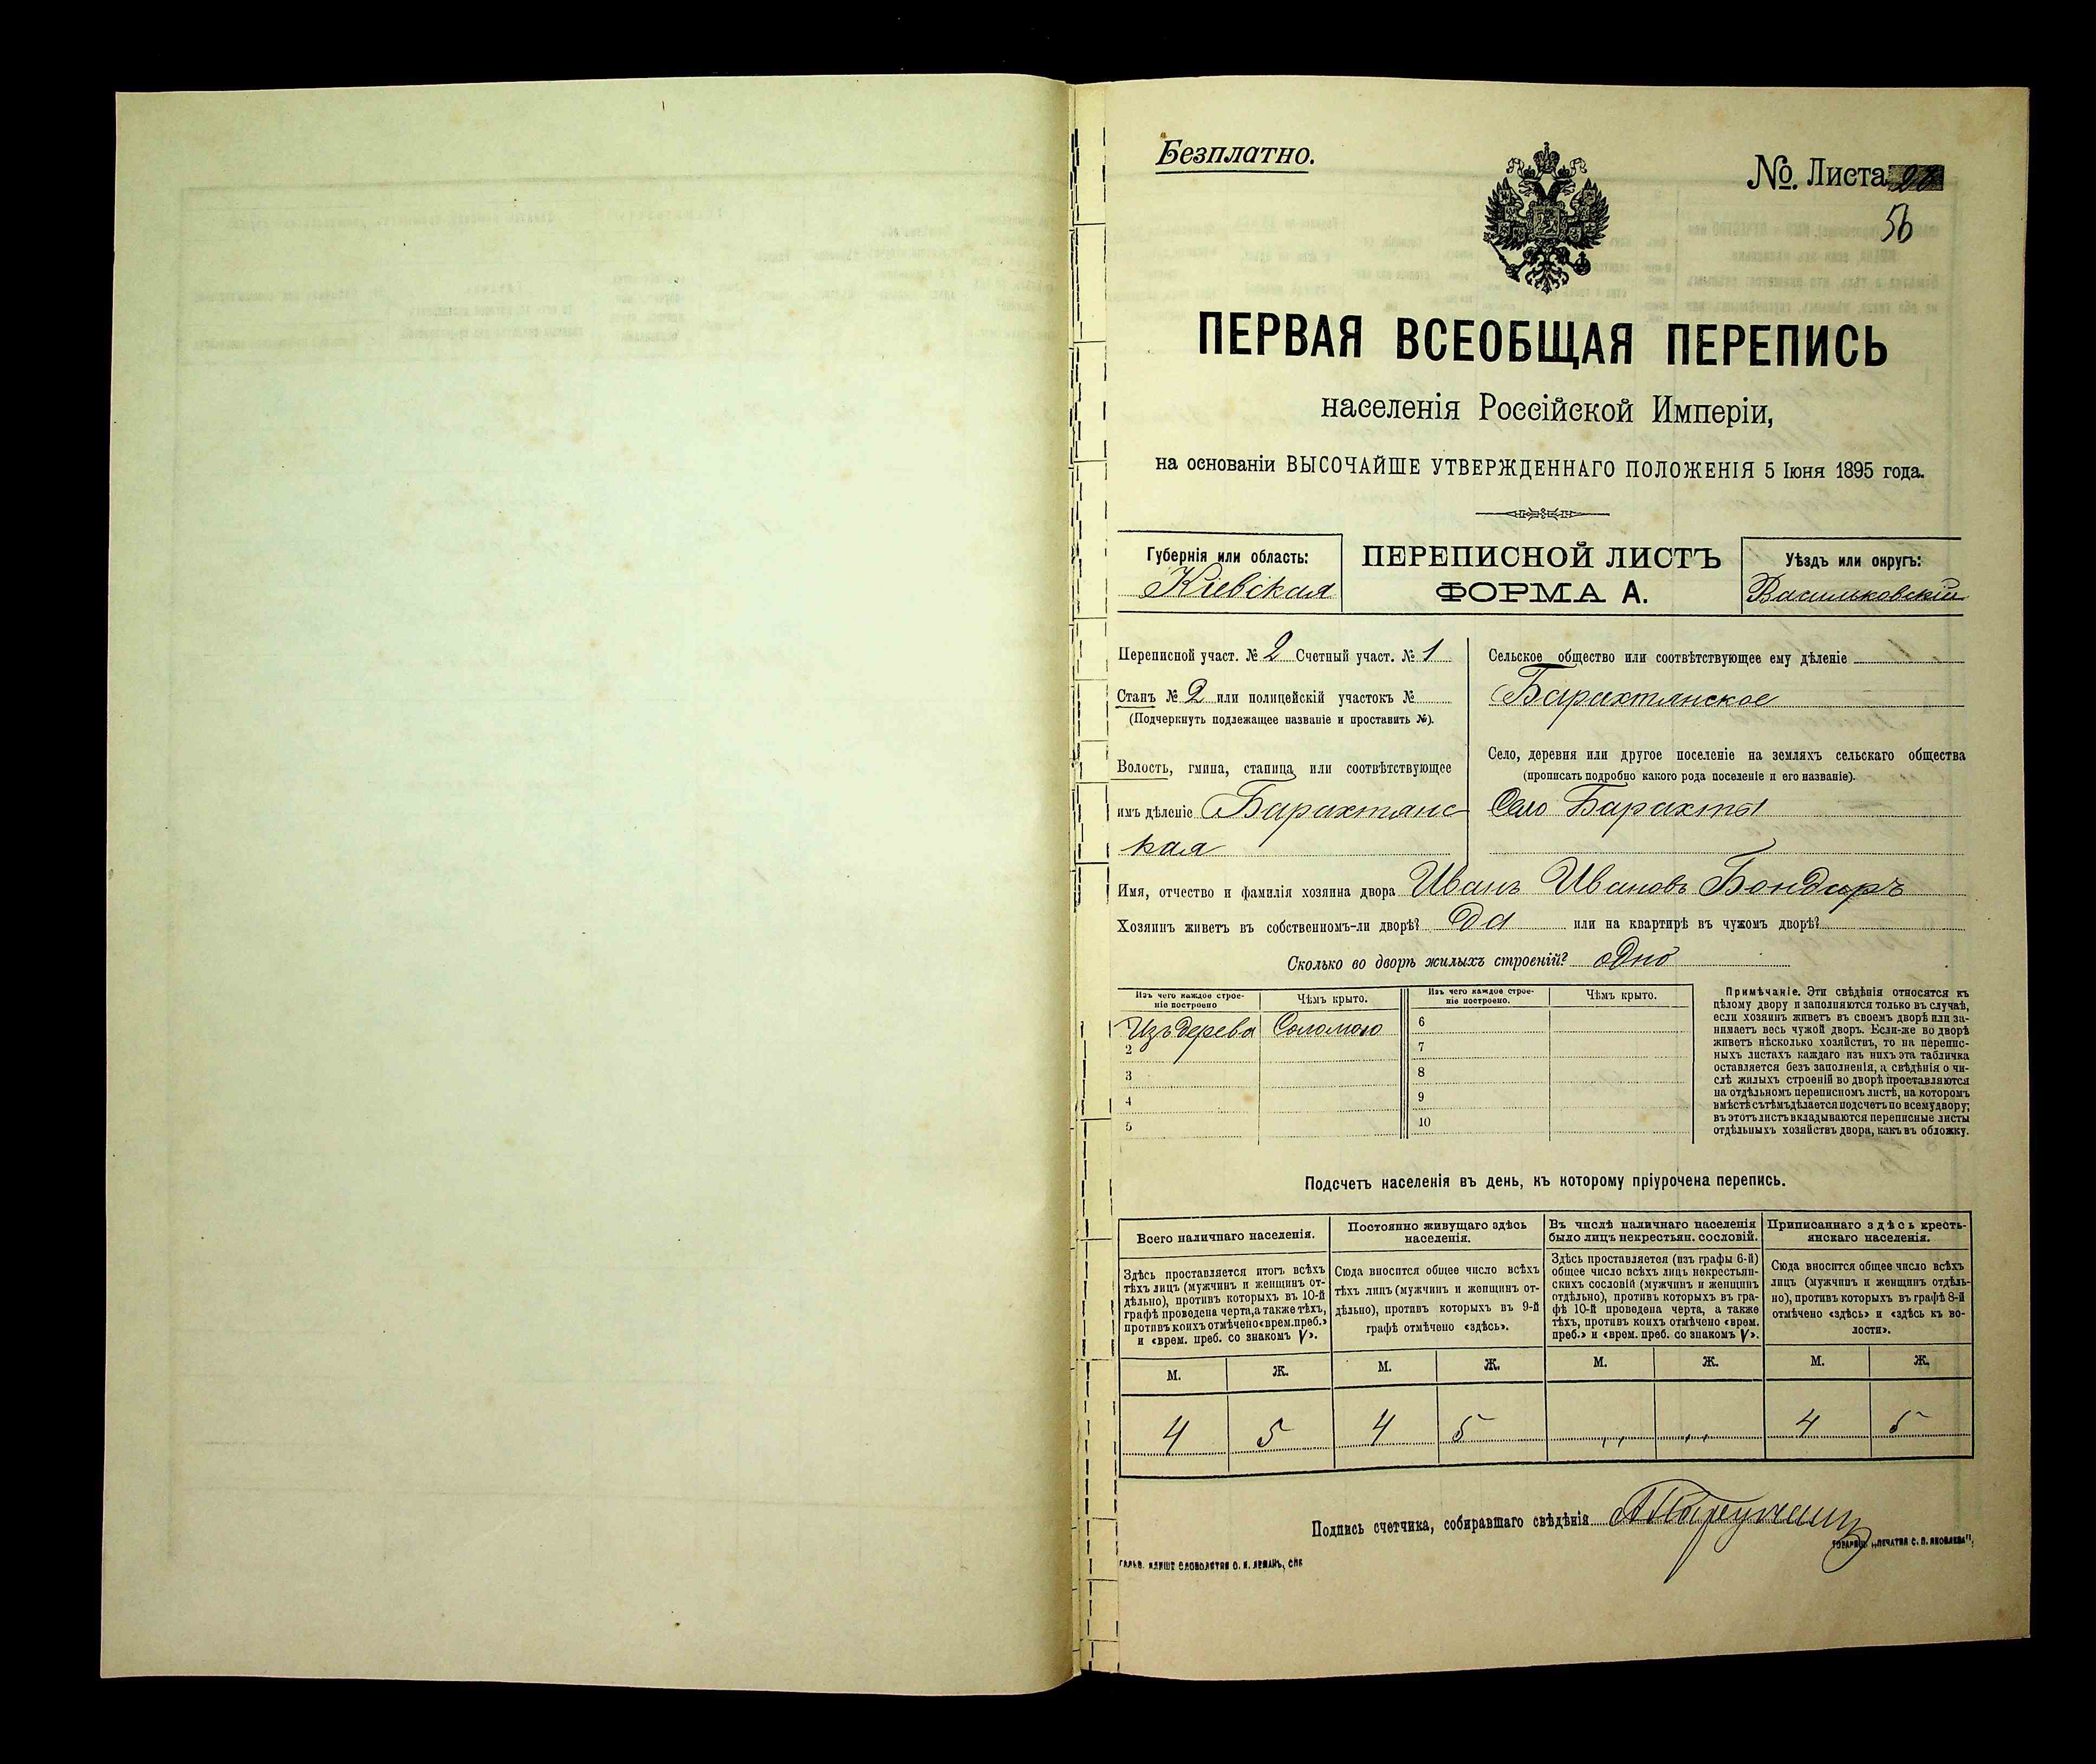 Безплатно.
№. Листа
56
ПЕРВАЯ ВСЕОБЩАЯ ПЕРЕПИСЬ
населенія Россійской Имперіи,
на основаніи ВЫСОЧАЙШЕ УТВЕРЖДЕННАГО ПОЛОЖЕНІЯ 5 Іюня 1895 года.
Губернія или область:
Кіевская
ПЕРЕПИСНОЙ ЛИСТЪ
ФОРМА А.
Уѣздъ или округъ:
Васильковскій
Переписной участ. № 2 Счетный участ. № 1
Станъ № 2 или полицейскій участокъ №
(Подчеркнуть подлежащее названіе и проставить №).
Волость, гмина, станица или соотвѣтствующее
имъ дѣленіе Барахтянс
кая
Сельское общество или соотвѣтствующее ему дѣленіе
Барахтянское
Село, деревня или другое поселеніе на земляхъ сельскаго общества
(прописать подробно какого рода поселеніе и его названіе).
Село Барахты
Имя, отчество и фамилія хозяина двора Иванъ Ивановъ Бондарь
Хозяинъ живетъ въ собственномъ-ли дворѣ? Да или на квартирѣ въ чужомъ дворѣ?
Сколько во дворѣ жилыхъ строеній? одно
Изъ чего каждое строе-
ніе построено
Чѣмъ крыто.
Изъ дерева Соломою
2
3
4
5
Изъ чего каждое строе-
ніе построено.
Чѣмъ крыто.
6
7
8
9
10
Примѣчаніе. Эти свѣдѣнія относятся къ
цѣлому двору и заполняются только въ случаѣ,
если хозяинъ живетъ въ своемъ дворѣ или за-
нимаетъ весь чужой дворъ. Если-же во дворѣ
живетъ нѣсколько хозяйствъ, то на перепис-
ныхъ листахъ каждаго изъ нихъ эта табличка
оставляется безъ заполненія, а свѣдѣнія о чи-
слѣ жилыхъ строеній во дворѣ проставляются
на отдѣльномъ переписномъ листѣ, на которомъ
вмѣстѣ съ тѣмъ дѣлается подсчетъ по всему двору;
въ этотъ листъ вкладываются переписные листы
отдѣльныхъ хозяйствъ двора, какъ въ обложку.
Подсчетъ населенія въ день, къ которому пріурочена перепись.
Всего наличнаго населенія.
Здѣсь проставляется итогъ всѣхъ
тѣхъ лицъ (мужчинъ и женщинъ от-
дѣльно), противъ которыхъ въ 10-й
графѣ проведена черта, а также тѣхъ,
противъ коихъ отмѣчено «врем. преб.»
и «врем. преб. со знакомъ V».
Постоянно живущаго здѣсь
населенія.
Сюда вносится общее число всѣхъ
тѣхъ лицъ (мужчинъ и женщинъ от-
дѣльно), противъ которыхъ въ 9-й
графѣ отмѣчено «здѣсь».
Въ числѣ наличнаго населенія
было лицъ некрестьян. сословій.
Здѣсь проставляется (изъ графы 6-й)
общее число всѣхъ лицъ некрестьян-
скихъ сословій (мужчинъ и женщинъ
отдѣльно), противъ которыхъ въ гра-
фѣ 10-й проведена черта, а также
тѣхъ, противъ коихъ отмѣчено «врем.
преб.» и «врем. преб. со знакомъ V».
Приписаннаго здѣсь кресть-
янскаго населенія.
Сюда вносится общее число всѣхъ
лицъ (мужчинъ и женщинъ отдѣль-
но), противъ которыхъ въ графѣ 8-й
отмѣчено «здѣсь» и «здѣсь въ во-
лости».
М. Ж. М. Ж. М. Ж. М. Ж.
4 5 4 5 „ „ 4 5
Подпись счетчика, собиравшаго свѣдѣнія
ТОВАРИЩ. „ПЕЧАТНЯ С. П. ЯКОВЛЕВА“